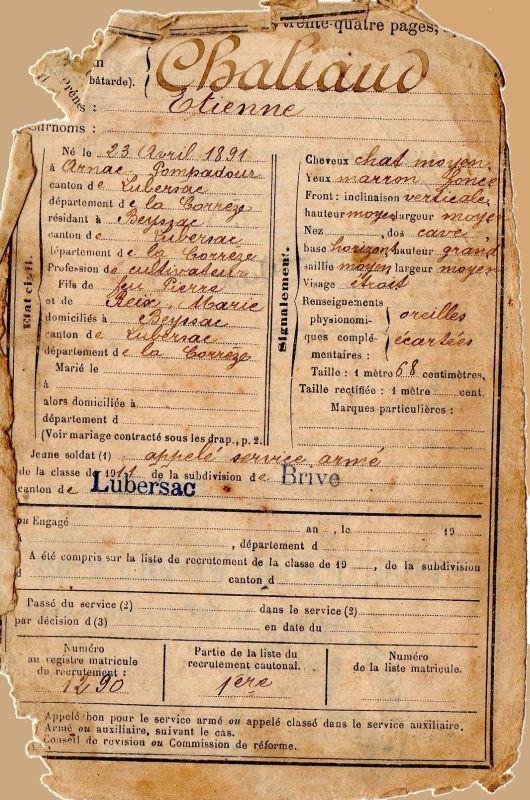 trente-quatre pages,
bâtarde). Chaliaud
Prénoms : Etienne
Surnoms :
Etat civil.
Né le 23 Avril 1891
à Arnac Pompadour
canton de Lubersac
département de la Corrèze
résidant à Beyssac
canton de Lubersac
département de la Corrèze
Profession de cultivateur
Fils de feu Pierre
et de Reix Marie
domiciliés à Beyssac
canton de Lubersac
département de la Corrèze
Marié le
à
alors domiciliée à
département d
(Voir mariage contracté sous les drap., p. 2.
Signalement.
Cheveux chat moyen
Yeux marron foncé
Front : inclinaison verticale
hauteur moye largeur moye
Nez , dos cavé,
base horizont hauteur grand
saillie moyen largeur moyen
Visage étroit
Renseignements
physionomi- oreilles
ques complé- écartées
mentaires :
Taille : 1 mètre 68 centimètres,
Taille rectifiée : 1 mètre cent.
Marques particulières :
Jeune soldat (1) appelé service armé
de la classe de 1911 de la subdivision de Brive
canton de Lubersac
ou Engagé an , le 19
, département d
A été compris sur la liste de recrutement de la classe de 19 , de la subdivision
d canton d
Passé du service (2) dans le service (2)
par décision d (3) en date du
Numéro
au registre matricule
du recrutement :
1290
Partie de la liste du
recrutement cantonal.
1ère
Numéro
de la liste matricule.
Appelé bon pour le service armé ou appelé classé dans le service auxiliaire.
Armé ou auxiliaire, suivant le cas.
Conseil de revision ou Commission de réforme.